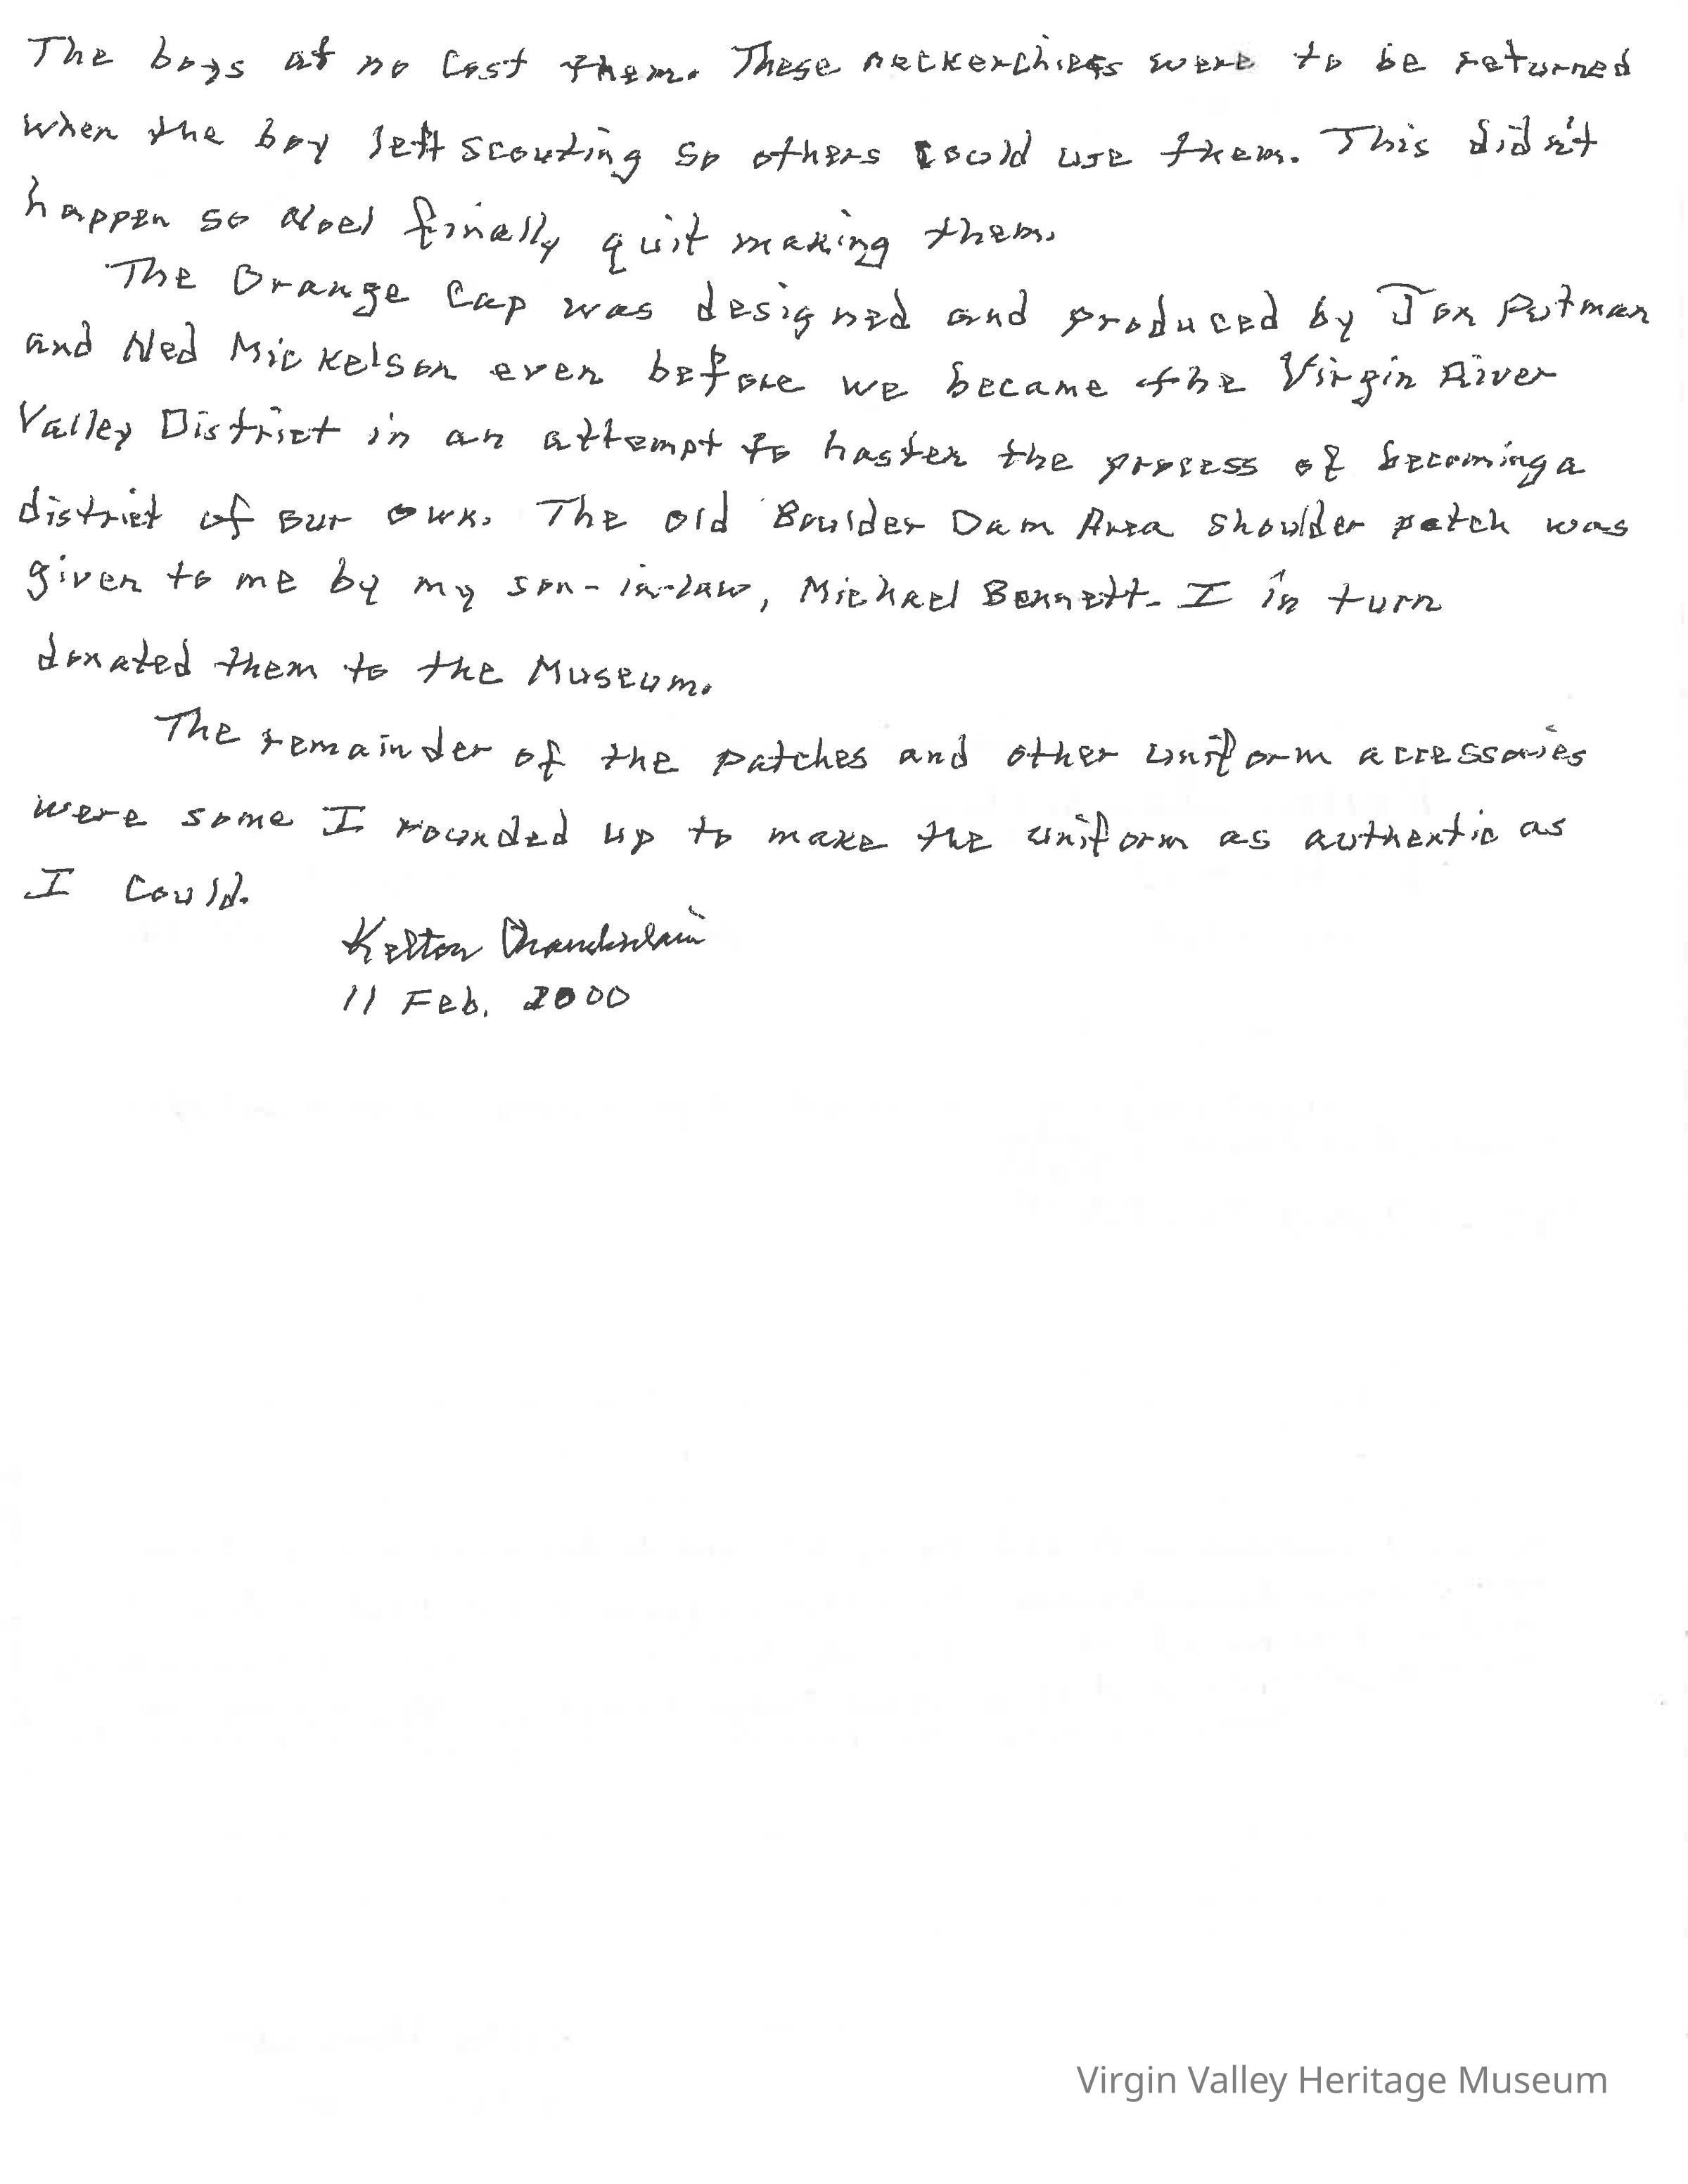 The boys at no Cost them. These neckerchiefs were to be returned
when the boy left scouting so others could use them. This didn't
happen so Noel finally quit making them.
The Orange Cap was designed and produced by Jon Putman
and Ned Mickelson even before we became the Virgin River
Valley District in an attempt to hasten the process of becoming a
district of our own. The old Boulder Dam Area shoulder patch was
given to me by my son-in-law, Michael Bennett. I in turn
donated them to the Museum.
The remainder of the patches and other uniform accessories
were some I rounded up to make the uniform as authentic as
I Could.
Kelton Chamberlain
11 Feb. 2000
Virgin Valley Heritage Museum